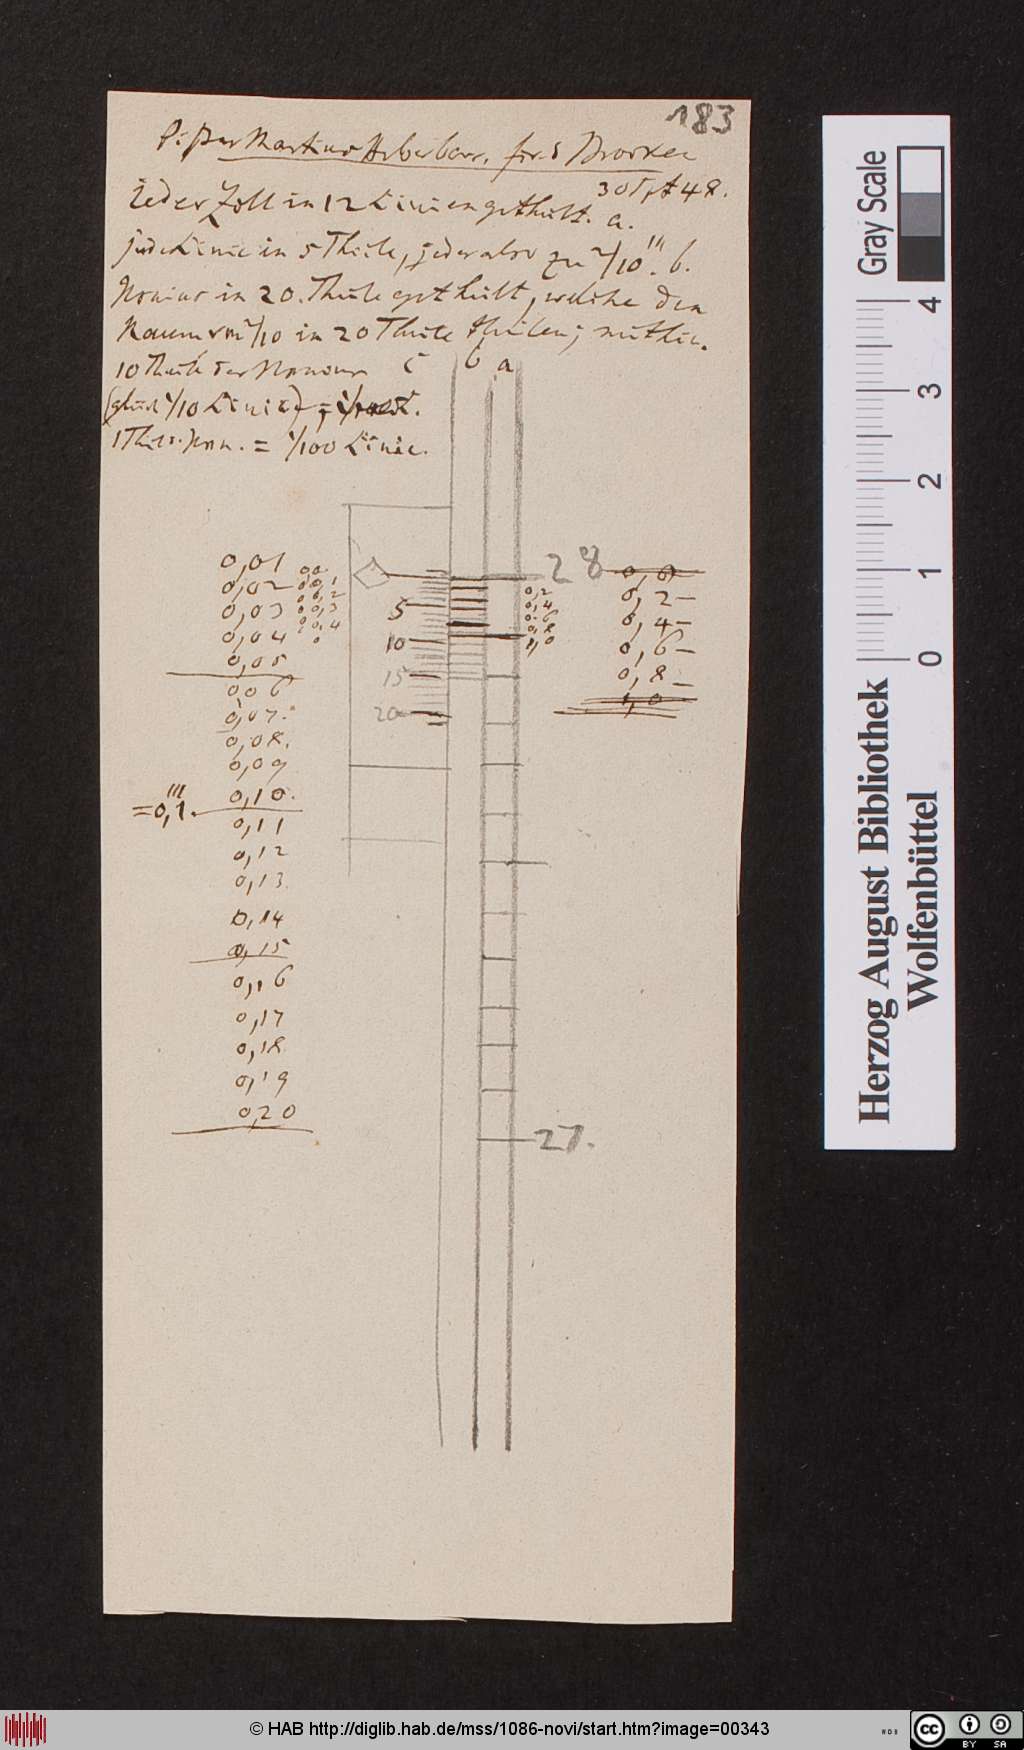 183
P. Martius Heberbarr. fürs Brocken
30 Spt 48.
Jeder Zoll in 12 Linien getheilt. a.
jede Linie in 5 Theile, jeder also zu 2/10 ''' . b.
Nonius in 20. Theile getheilt, welche den
Raum von 2/10 in 20 Theile theilen; mithin.
10 Theile des Nonius
(gleich 1/10 Linie) =
1 Theil d. Non. = 1/100 Linie.
c b a
28
0,01
0,02
0,03
0,04
0,05
0,06
0,07.
0,08.
0,09
0,10.
= 0,1 '''.
0,11
0,12
0,13
0,14
0,15
0,16
0,17
0,18
0,19
0,20
5
10
15
20
0,2
0,4
0,6
0,8
1,0
0,0
0,2
0,4
0,6
0,8
1,0
27.
Gray Scale
4
3
2
1
0
Herzog August Bibliothek
Wolfenbüttel
© HAB http://diglib.hab.de/mss/1086-novi/start.htm?image=00343
cc BY SA